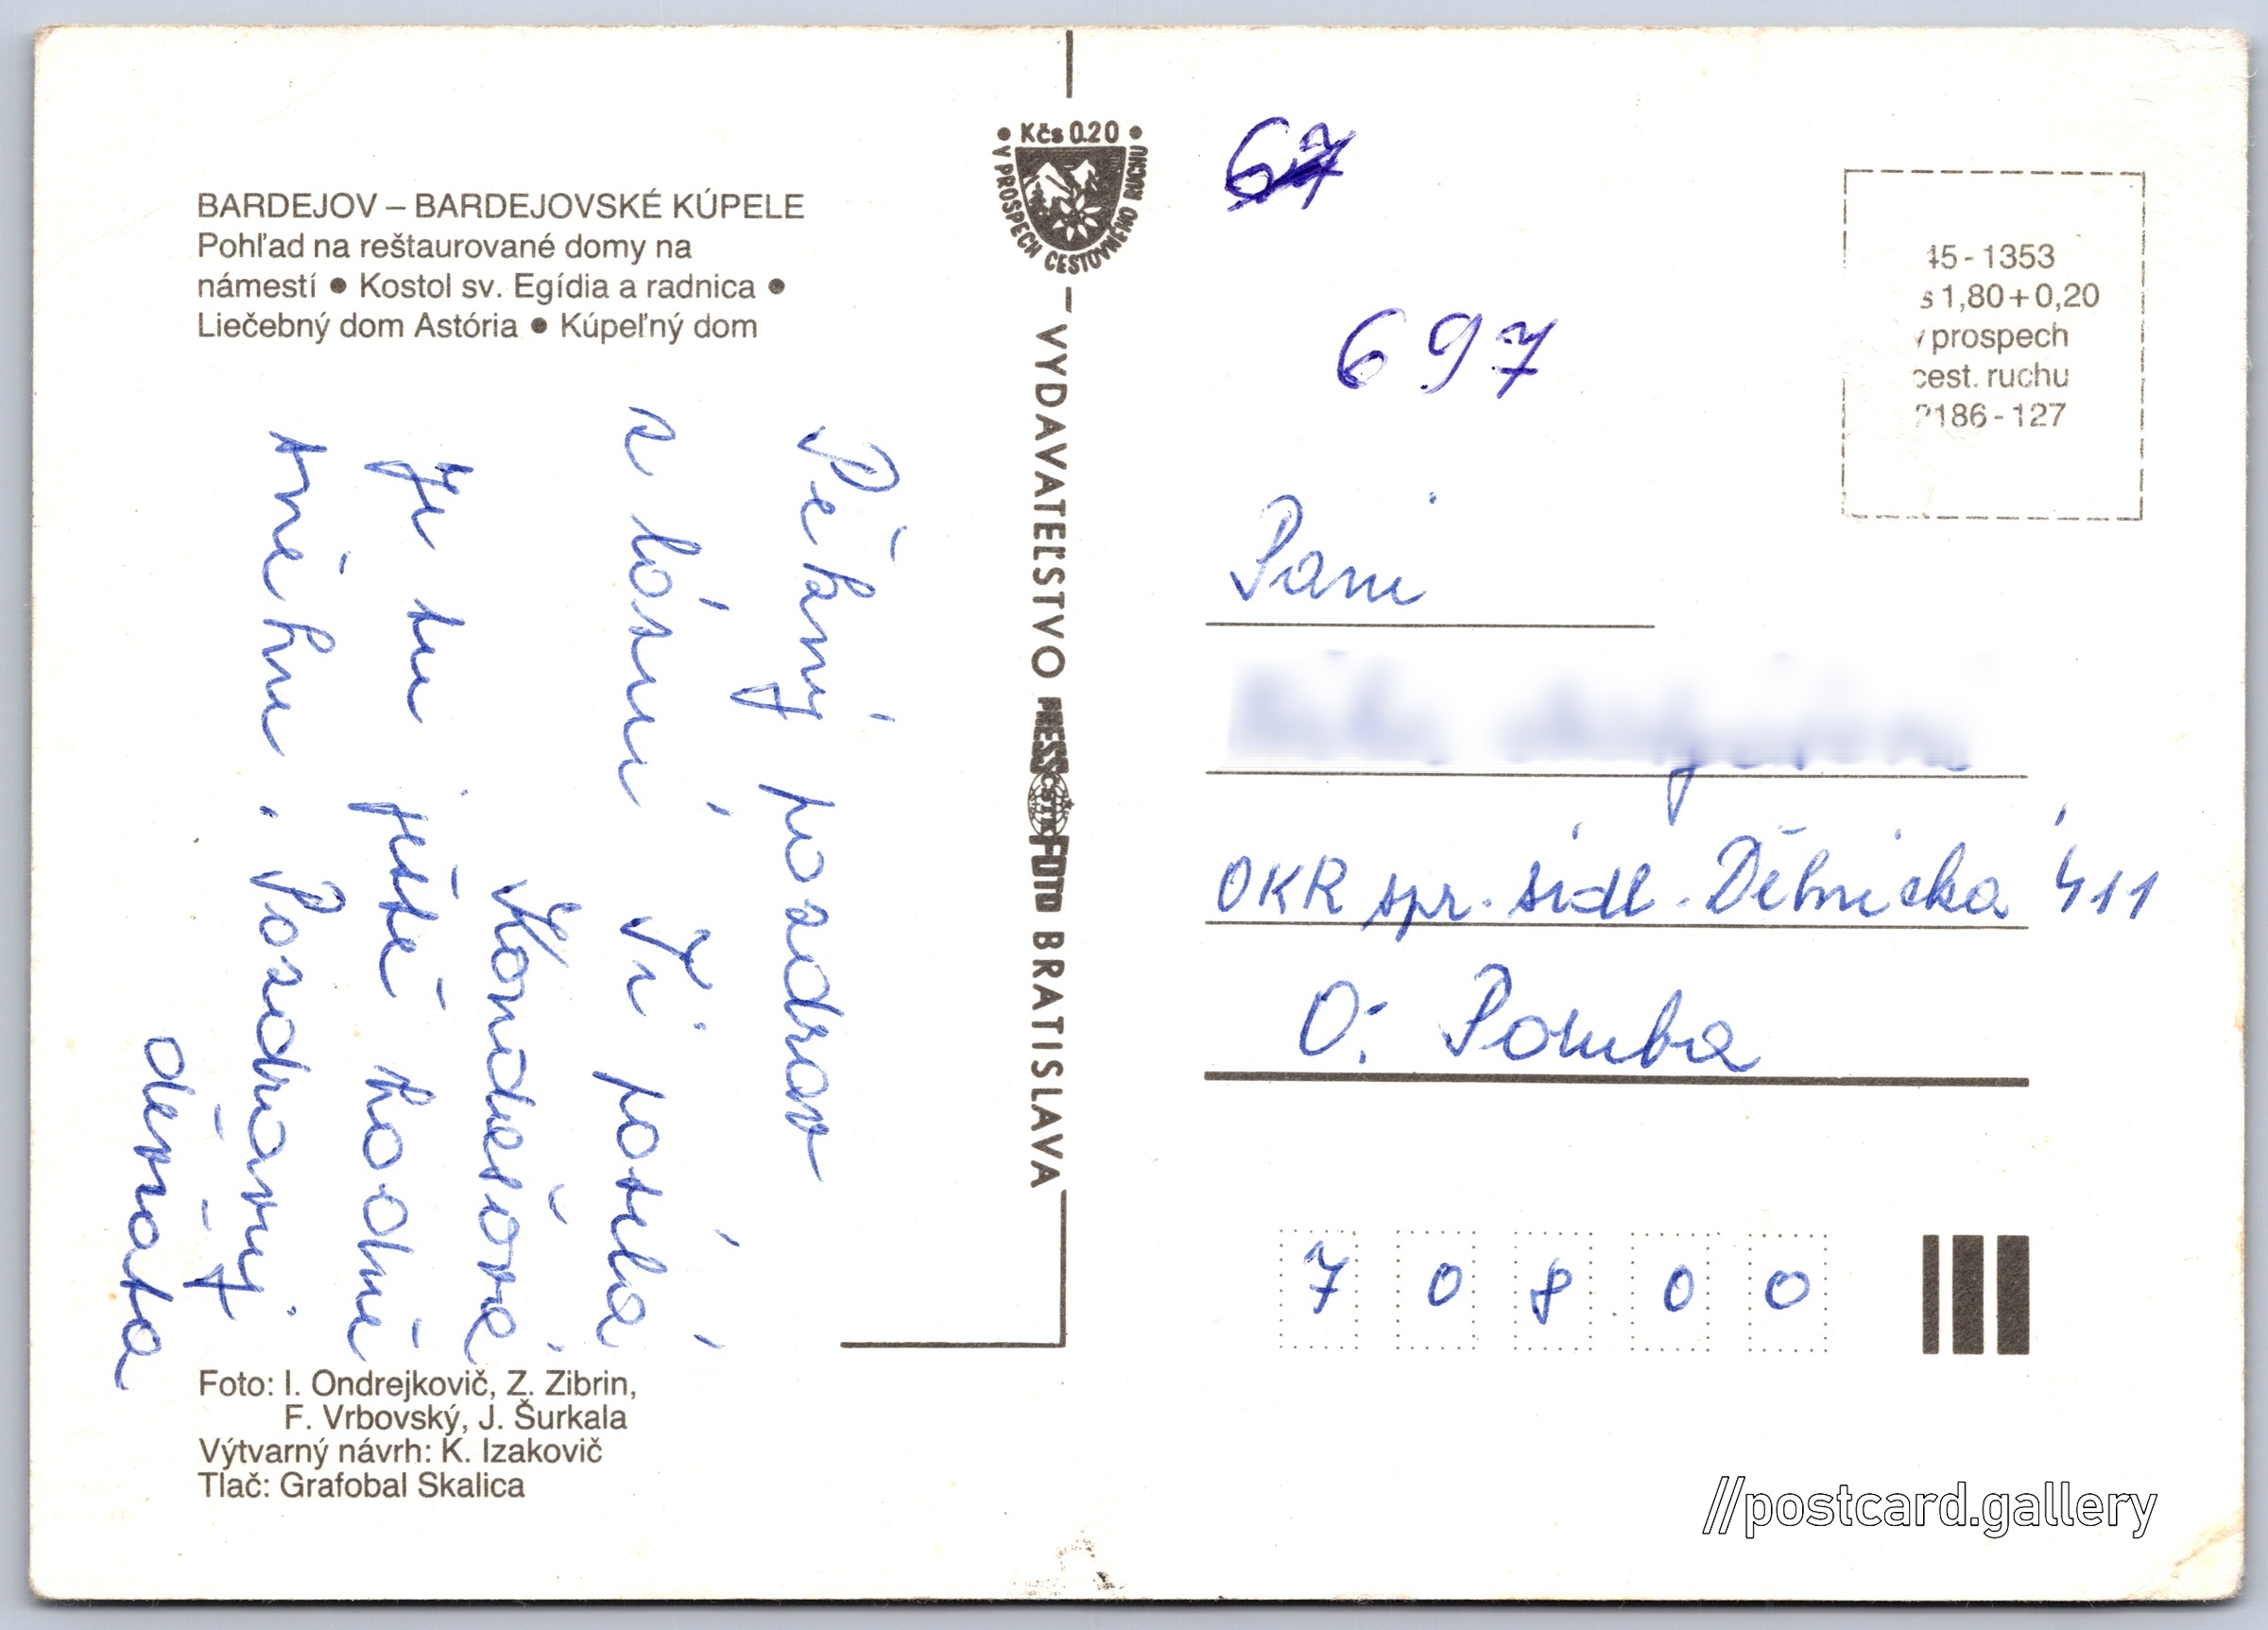 BARDEJOV – BARDEJOVSKÉ KÚPELE
Pohľad na reštaurované domy na
námestí ● Kostol sv. Egídia a radnica ●
Liečebný dom Astória ● Kúpeľný dom
Pěkný pozdrav
z lázní Ti posílá
Kondesová
Je tu ještě hodně
sněhu. Pozdravuj
děvčata
Foto: I. Ondrejkovič, Z. Zibrin,
F. Vrbovský, J. Šurkala
Výtvarný návrh: K. Izakovič
Tlač: Grafobal Skalica
● Kčs 0.20 ●
V PROSPECH CESTOVNÉHO RUCHU
VYDAVATEĽSTVO PRESSFOTO BRATISLAVA
ČSTK
67
697
45-1353
s 1,80+0,20
v prospech
cest. ruchu
2186-127
Paní
OKR spr. sídl. Dělnická 411
O. Poruba
7 0 8 0 0
//postcard.gallery